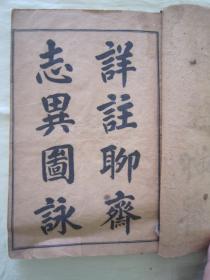 詳註聊齋
志異圖詠